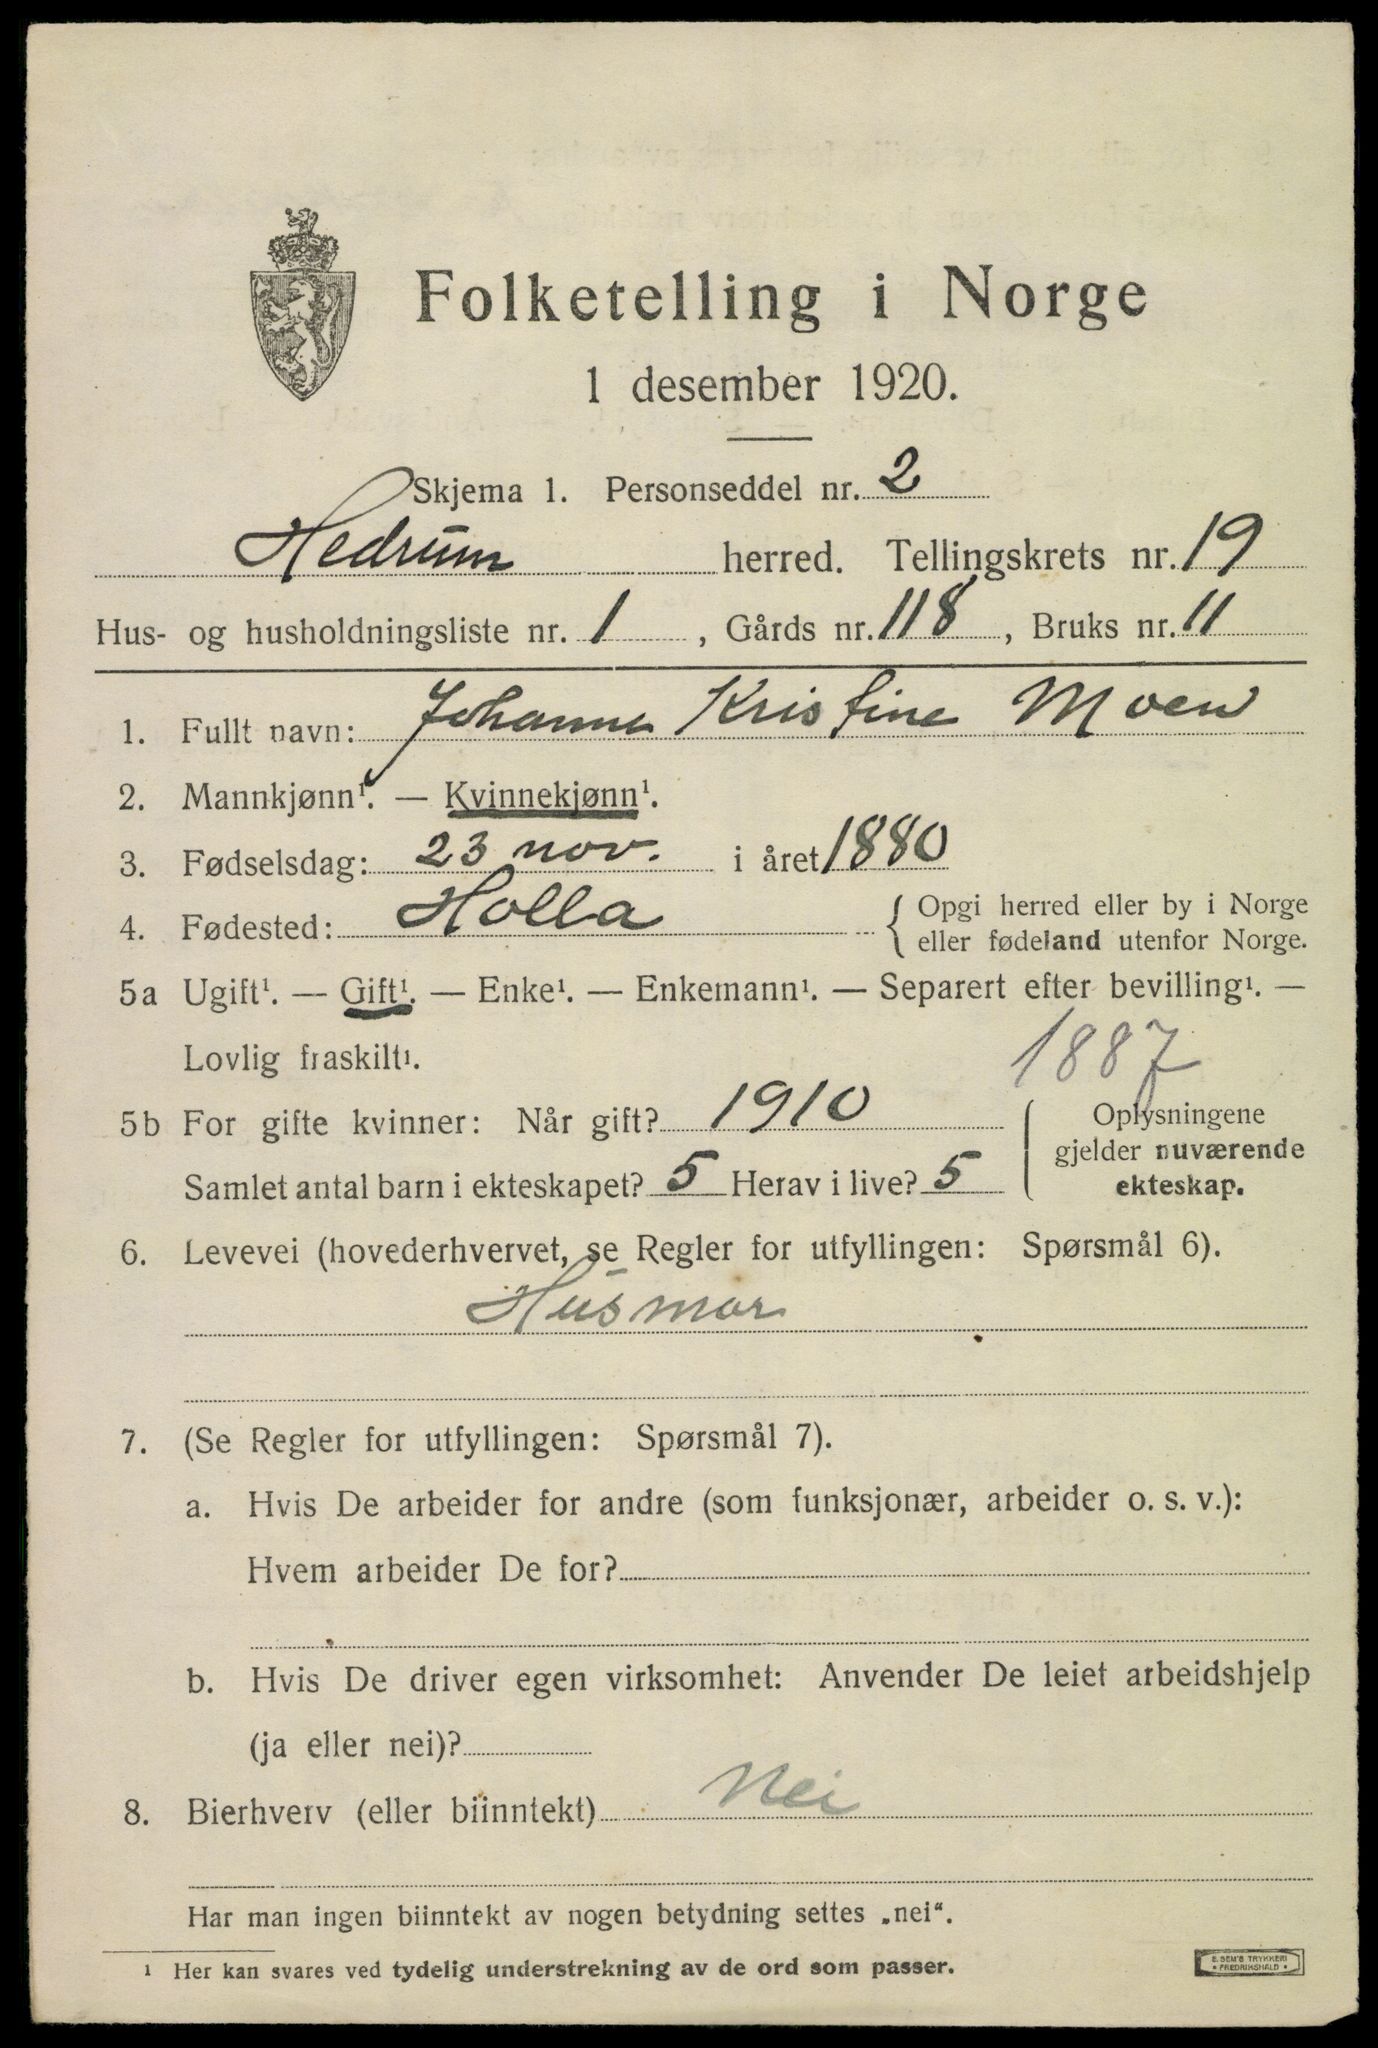 Folketelling i Norge
1 desember 1920.
Skjema 1. Personseddel nr. 2
Hedrum herred. Tellingskrets nr. 19
Hus- og husholdningsliste nr. 1, Gårds nr. 118, Bruks nr. 11
1. Fullt navn: Johanne Kristine Moen
2. Mannkjønn¹. — Kvinnekjønn¹.
3. Fødselsdag: 23 nov. i året 1880
4. Fødested: Holla { Opgi herred eller by i Norge
eller fødeland utenfor Norge.
5a Ugift¹. — Gift¹. — Enke¹. — Enkemann¹. — Separert efter bevilling¹. —
Lovlig fraskilt¹.
1887
5b For gifte kvinner: Når gift? 1910
Samlet antal barn i ekteskapet? 5 Herav i live? 5
Oplysningene
gjelder nuværende
ekteskap.
6. Levevei (hovederhvervet, se Regler for utfyllingen: Spørsmål 6).
Husmor
7. (Se Regler for utfyllingen: Spørsmål 7).
a. Hvis De arbeider for andre (som funksjonær, arbeider o. s. v.):
Hvem arbeider De for?
b. Hvis De driver egen virksomhet: Anvender De leiet arbeidshjelp
(ja eller nei)?
8. Bierhverv (eller biinntekt) Nei
Har man ingen biinntekt av nogen betydning settes „nei“.
¹ Her kan svares ved tydelig understrekning av de ord som passer.
E. SEM'S TRYKKERI
• FREDRIKSHALD •